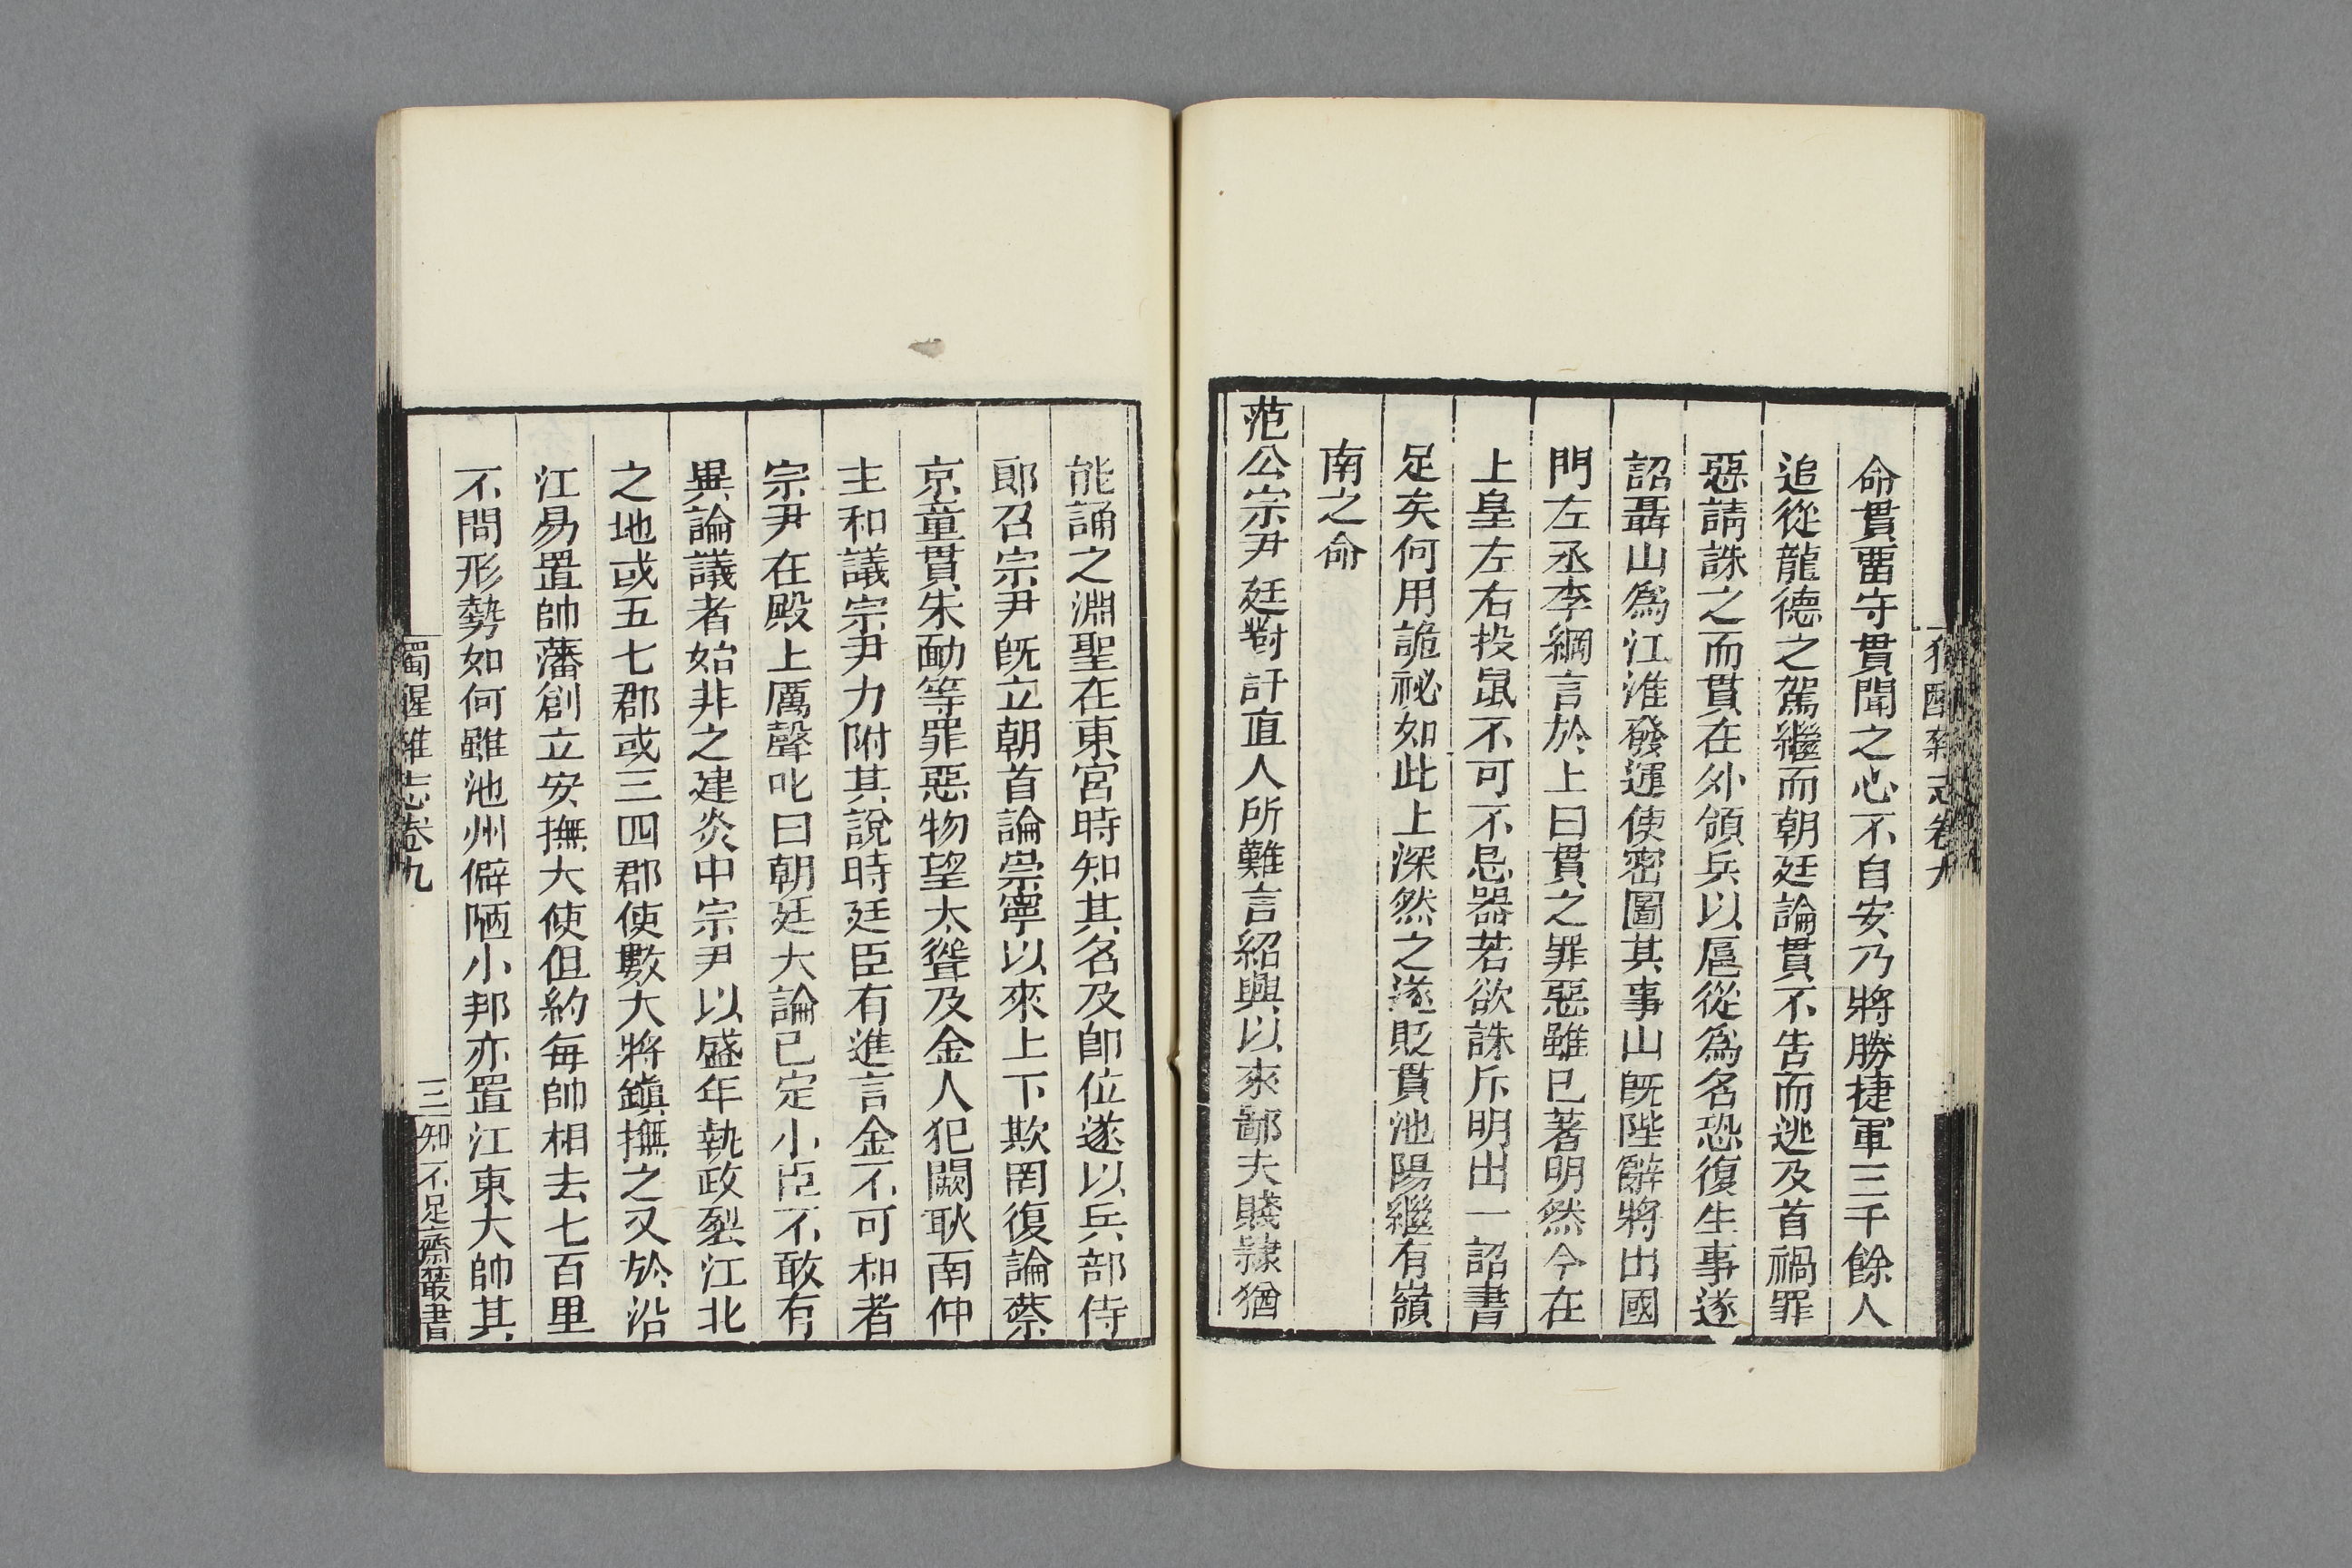 命貫畱守貫聞之心不自安乃將勝捷軍三千餘人
追從龍德之駕繼而朝廷論貫不告而逃及首禍罪
惡請誅之而貫在外領兵以扈從爲名恐復生事遂
詔聶山爲江淮發運使密圖其事山旣陛辭將出國
門左丞李綱言於上曰貫之罪惡雖已著明然今在
上皇左右投鼠不可不忌器若欲誅斥明出一詔書
足矣何用詭祕如此上深然之遂貶貫池陽繼有嶺
南之命
范公宗尹廷對訐直人所難言紹興以來鄙夫賤隸猶
能誦之淵聖在東宮時知其名及卽位遂以兵部侍
郞召宗尹旣立朝首論崇寧以來上下欺罔復論蔡
京童貫朱勔等罪惡物望太聳及金人犯闕耿南仲
主和議宗尹力附其說時廷臣有進言金不可和者
宗尹在殿上厲聲叱曰朝廷大論已定小臣不敢有
異論議者始非之建炎中宗尹以盛年執政裂江北
之地或五七郡或三四郡使數大將鎭撫之又於沿
江易置帥藩創立安撫大使但約每帥相去七百里
不問形勢如何雖池州僻陋小邦亦置江東大帥其
獨醒雜志卷九
三
知不足齋叢書